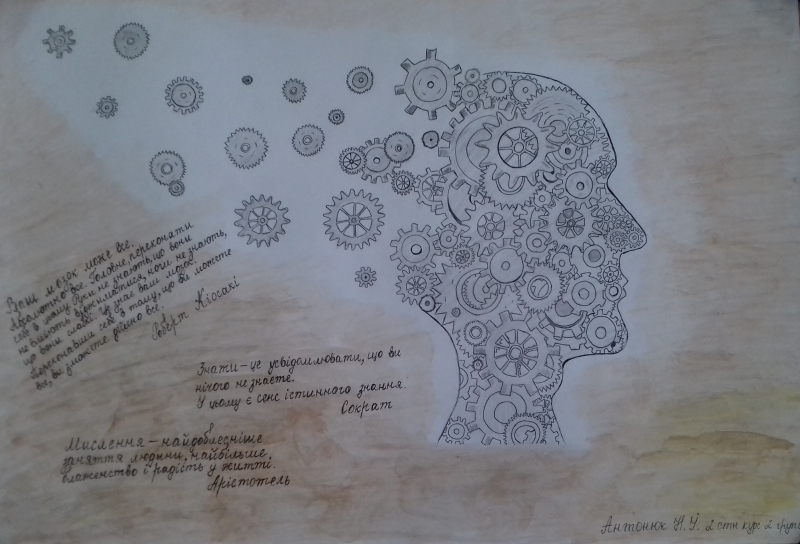 Ваш мозок може все.
Абсолютно все. Головне, переконати
себе в цьому. Руки не знають, що вони
не вміють віджиматися, ноги не знають,
що вони слабкі. Це знає ваш мозок.
Переконавши себе в тому, що ви можете
все, ви зможете дійсно все.
Роберт Кіосакі
Знати – це усвідомлювати, що ви
нічого не знаєте.
У цьому є сенс істинного знання.
Сократ
Мислення – найдоблесніше
заняття людини, найбільше
блаженство і радість у житті.
Арістотель
Антонюк Н.У. 2 стн курс 2 група